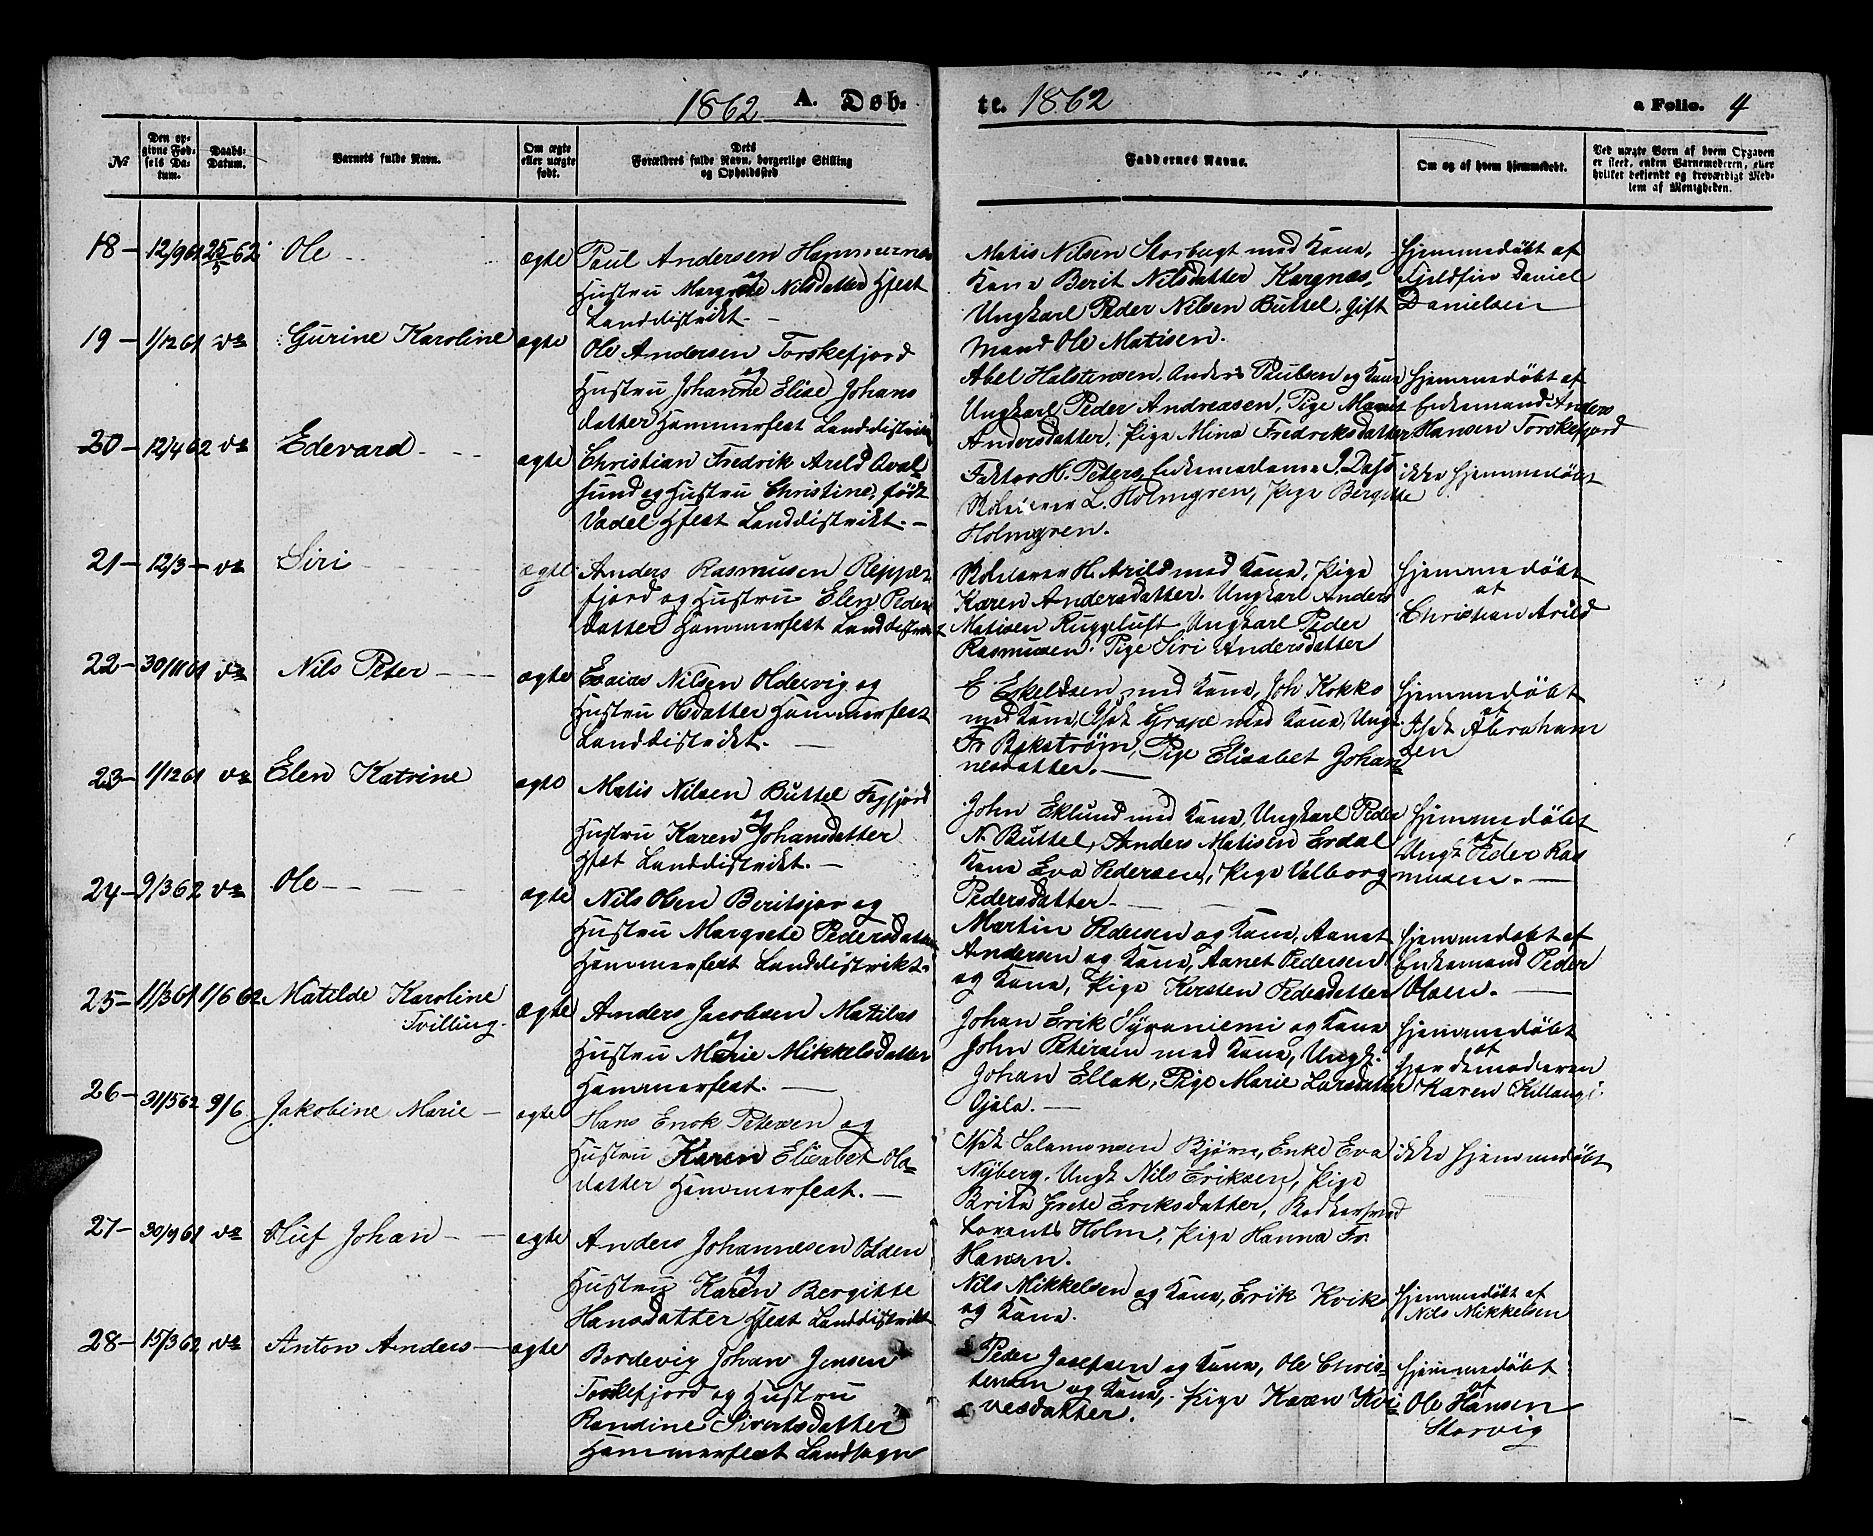 1862 A. Døb-
te. 1862 a Folio. 4
№
Den op-
givne Fød-
sels Da-
tum.
Daabs-
Datum.
Barnets fulde Navn.
Om ægte
eller uægte
født.
Dets
Forældres fulde Navn, borgerlige Stilling
og Opholdssted
Faddernes Navne.
Om og af hvem hjemmedøbt.
Ved uægte Børn af hvem Opgaven
er skeet, enten Barnemoderen, eller
hvilket bekjendt og troværdigt Med-
lem af Menigheden.
18 - 12/9 61 25/5 62 Ole ægte
Paul Andersen Hammernes
og
Hustru Margrete Nilsdatter Hfest
Landdistrikt. -
Matis Nilsen Storbugt med Kone,
Kone Berit Nilsdatter Kargnæs,
Ungkarl Peder Nilsen Buttel, Gift
Mand Ole Matisen.
Hjemmedøbt af
Fjeldfin Daniel
Danielsen
19 - 1/12 61 da Gurine Karoline ægte
Ole Andersen Torskefjord
og
Hustru Johanne Elise Johans
datter Hammerfest Landdistrikt
Abel Halstensen, Anders Paulsen og Kone
Ungkarl Peder Andreasen, Pige Marit
Andersdatter, Pige Mina Fredriksdatter
Hjemmedøbt af
Enkemand Anders
Hansen Torskefjord
20 - 12/4 62 da Edevard ægte
Christian Fredrik Arild Qval
sund og Hustru Christine, født
Vadel Hfest Landdistrikt. -
Faktor H. Peters, Enkemadame J. Dass
L. Holmgren, Pige Bergitte
Holmgren.
ikke hjemmedøbt
21 - 12/3 - da Siri ægte
Anders Rasmusen Repper
fjord og Hustru Elen Peders
datter Hammerfest Landdistrikt
H. Arild med Kone, Pige
Karen Andersdatter, Ungkarl Anders
Matisen Ruggeluft, Ungkarl Peder
Rasmusen. Pige Siri Andersdatter
Hjemmedøbt
af
Christian Arild
22 - 30/11 61 da Nils Peter ægte
Esaias Nilsen Oldervig og
Hustru Olsdatter Hammerfest
Landdistrikt. -
E Eskeldsen med Kone, Joh Kokko
med Kone, Isak Grape med Kone, Ungk.
Fr Bekstrøm, Pige Elisabet Johan
nesdatter. -
Hjemmedøbt
af
Isak Abraham
sen
23 - 1/12 61 da Elen Katrine ægte
Matis Nilsen Buttel Fægfjord
og
Hustru Karen Johansdatter
Hfest Landdistrikt. -
John Eklund med Kone, Ungkarl Peder
N. Buttel, Anders Matisen Erdal
Kone Eva Pedersen, Pige Valborg
Pedersdatter. -
Hjemmedøbt
af
Ungk Peder Ras
musen. -
24 - 9/3 62 da Ole ægte
Nils Olsen Beritsjor og
Hustru Margrete Pedersdatter
Hammerfest Landdistrikt.
Martin Pedersen og Kone, Aanet
Andersen og Kone, Aanet Pedersen
og Kone, Pige Kirsten Pedersdatter
Hjemmedøbt af
Enkemand Peder
Olsen. -
25 - 11/3 61 1/6 62 Matilde Karoline
Tvilling. ægte
Anders Jacobsen Matilas
og
Hustru Marie Mikkelsdatter
Hammerfest. -
Johan Erik Syvaniemi og Kone
John Petersen med Kone, Ungk.
Johan Ellak, Pige Marie Larsdatter
Ojala. -
Hjemmedøbt
af
Jordemoderen
Karen Killangi
26 - 31/5 62 9/6 Jakobine Marie - ægte
Hans Enok Petersen og
Hustru Karen Elisabet Ols
datter Hammerfest. -
Isak Salamonsen Bjørn, Enke Eva
Nyberg. Ungk Nils Eriksen, Pige
Brita Grete Eriksdatter,
Lorents Holm, Pige Hanna Fr.
Hansen.
ikke hjemmedøbt
27 - 30/9 61 da Oluf Johan ægte
Anders Johannesen Olden
og
Hustru Karen Bergitte
Hansdatter Hfest Landdistrikt
Nils Mikkelsen og Kone, Erik Kvik
og Kone.
Hjemmedøbt af
Nils Mikkelsen
28 - 15/3 62 da Anton Anders - ægte
Bordevig Johan Jensen
Torskefjord og Hustru
Randine Sivertsdatter
Hammerfest Landsogn
Peder Josefsen og Kone, Ole Chris
tensen og Kone, Pige Karen Kvi
vesdatter.
Hjemmedøbt
af
Ole Hansen
Storvig